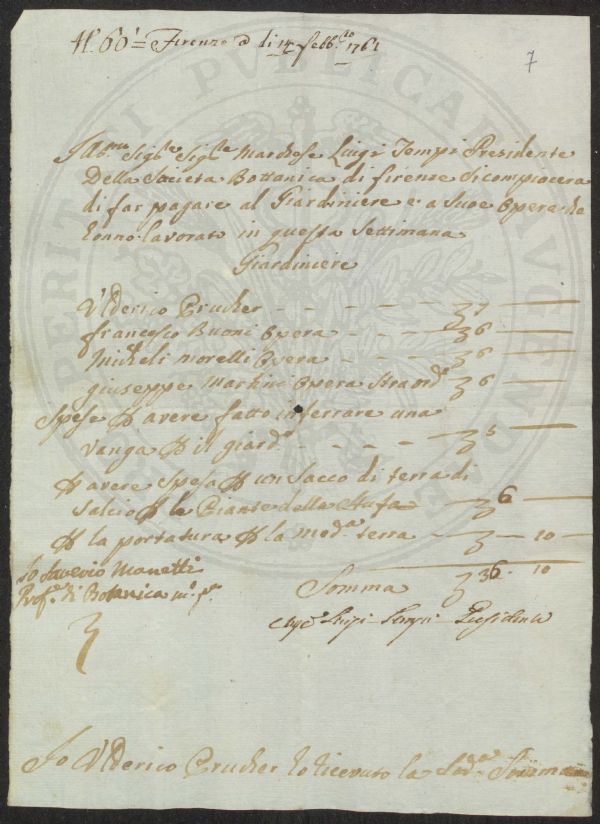 N.° 60 = Firenze a dì 14 Febb.ro 1761
7
Ill.mo Sig.re Sig.re Marchese Luigi Tempi Presidente
Della Società Bottanica di firenze Si compiacera
di far pagare al Giardiniere e a Suoe Opera che
hanno lavorato in questa Settimana
Giardiniere
Ulderico Prucher - - - - - 7 —
francesco Buoni Opera - - - 6 —
Micheli morelli Opera - - - 6 —
giuseppe Martini Opera Straord.a 6 —
Spese p avere fatto inferrare una
vanga p il giard.o - - - - 5 —
p avere Speso p un Sacco di terra di
Salcio p le Piante della Stufa — 6 —
p la portatura p la med.a terra — — 10 —
Io Saverio Manetti
Prof.e di Botanica m.o p.a
Somma 36 . 10
Luigi Tempi Presidente
Io Ulderico Prucher ho ricevuto la Sud.a Somma
PERITI PVBLICAE AVGENDAE